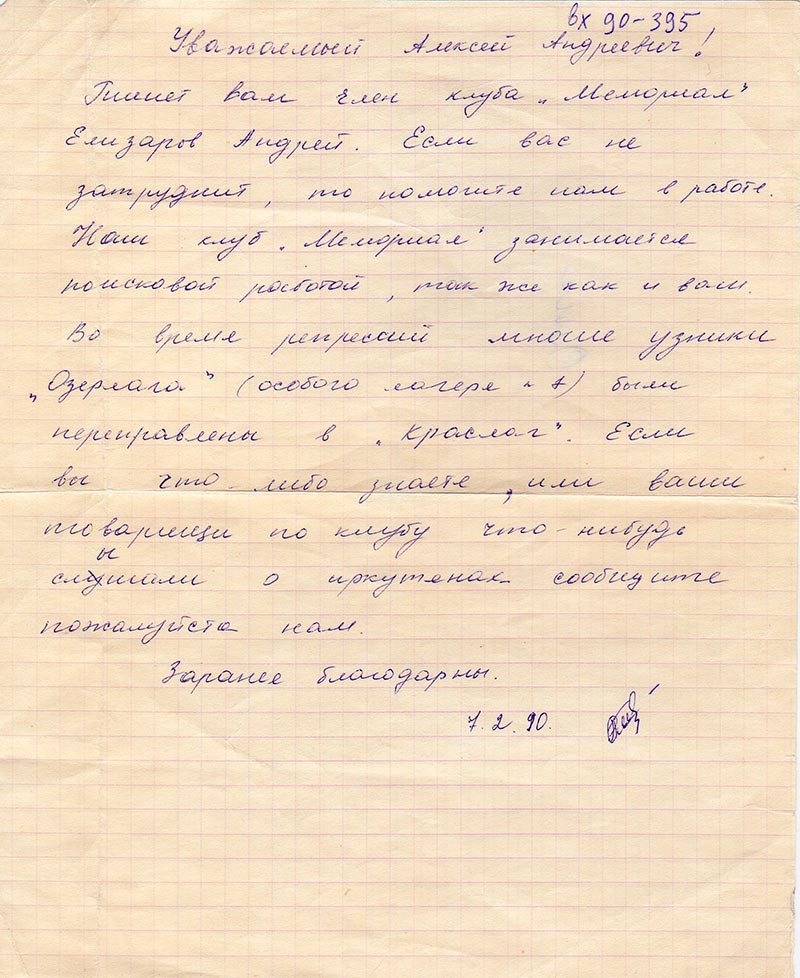 вх 90-395
Уважаемый Алексей Андреевич!
Пишет вам член клуба „Мемориал"
Елизаров Андрей. Если вас не
затруднит, то помогите нам в работе.
Наш клуб „Мемориал" занимается
поисковой работой, так же как и ваш.
Во время репрессий многие узники
„Озерлага" (особого лагеря № 7) были
переправлены в „Краслаг". Если
вы что-либо знаете, или ваши
товарищи по клубу что-нибудь
слышали о иркутянах сообщите
пожалуйста нам.
Заранее благодарны.
7.2.90.